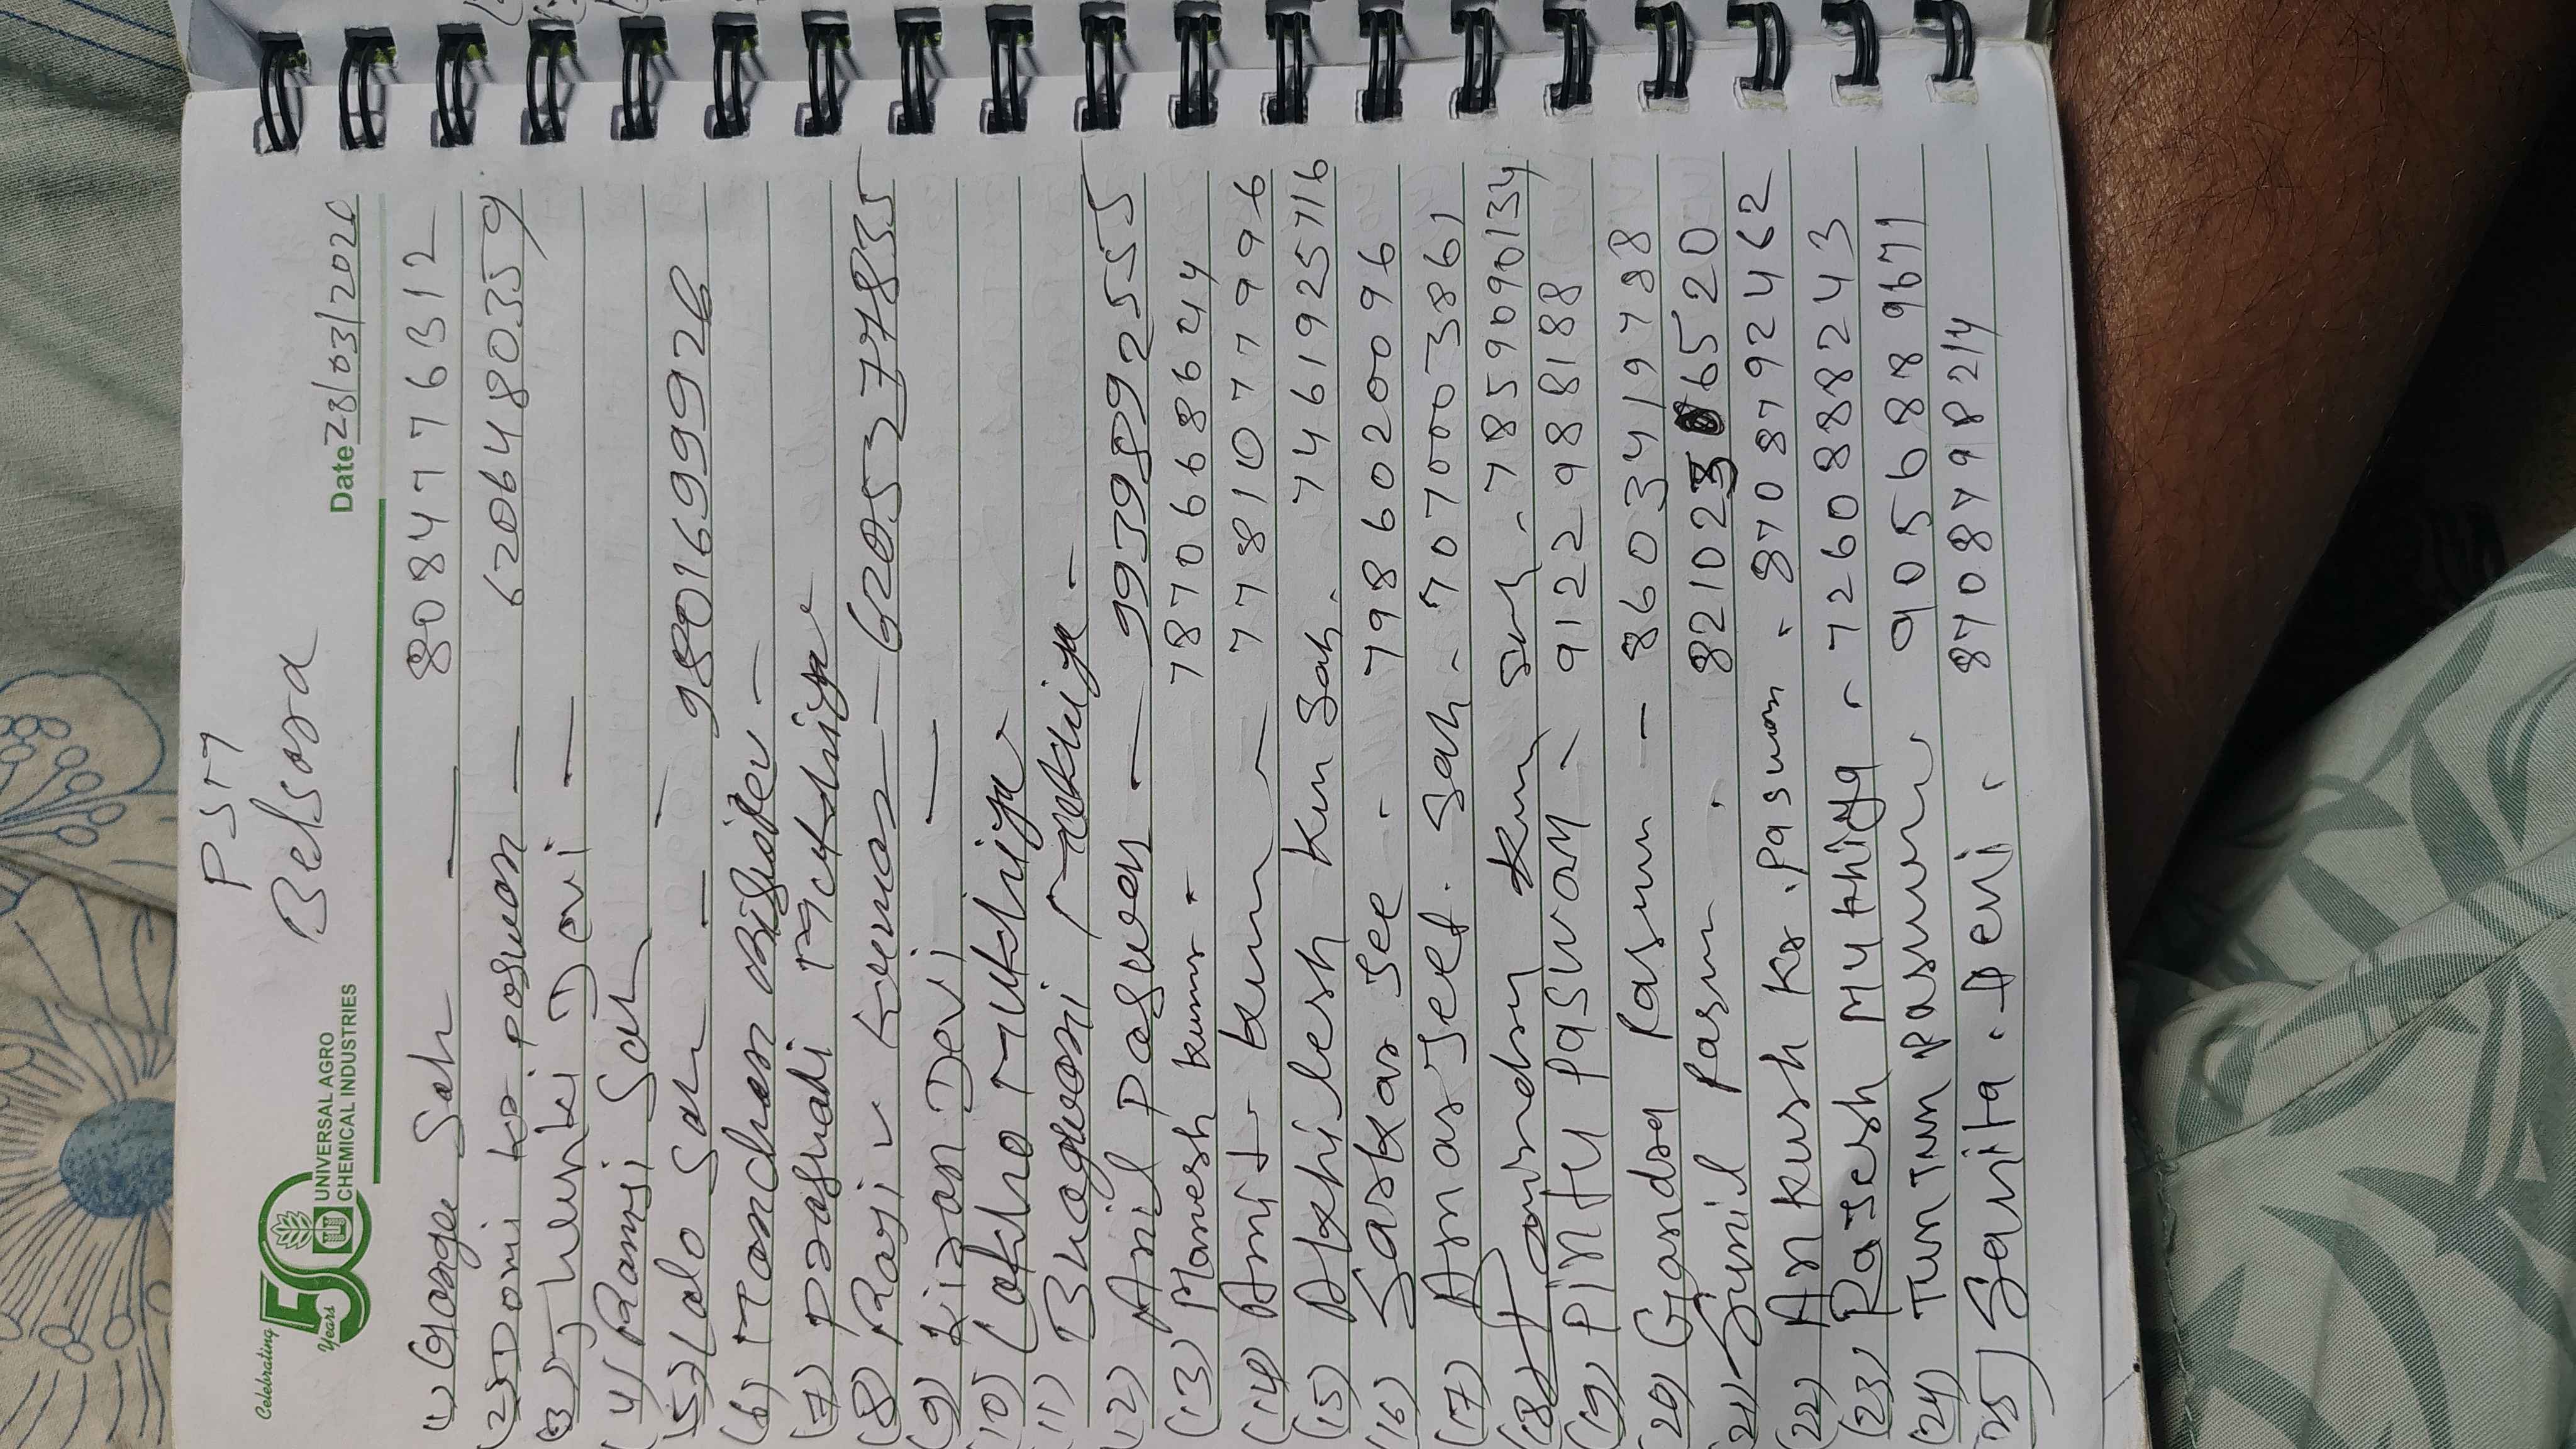 PSTT
Belsara
Celebrating
50
Years
UNIVERSAL AGRO
CHEMICAL INDUSTRIES
Date 28/03/202
(1) Sah — 8084776312
(2) Doni kr paswan — 6206480359
(3) Devi —
(4) Ramji Sah —
(5) Lalo Sah — 9801699926
(6) Manchan —
(7) Mukhiya
(8) Rajiv Kumar — 6205377835
(9) Kiran Devi —
(10) Mukhiya
(11) Mukhiya -
(12) Anil Paswan - 9939892555
(13) Manesh Kumar - 7870668644
(14) Amit Kum 7781077996
(15) Akhilesh Kum Sah. 7461925716
(16) Sarkar Jee - 7986020096
(17) Amarjeet. Sah - 7070003861
(18) Kum Sah - 7859090134
(19) Pintu Paswan - 9122988188
(20) Pasum - 8603419788
(21) Sunil Pasum . 821023 6520
(22) Ankush Kr. Paswan - 8708792462
(23) Rajesh Mukhiya - 7260888243
(24) Tun Tun paswan 9056889671
(25) Devi . 8708798214